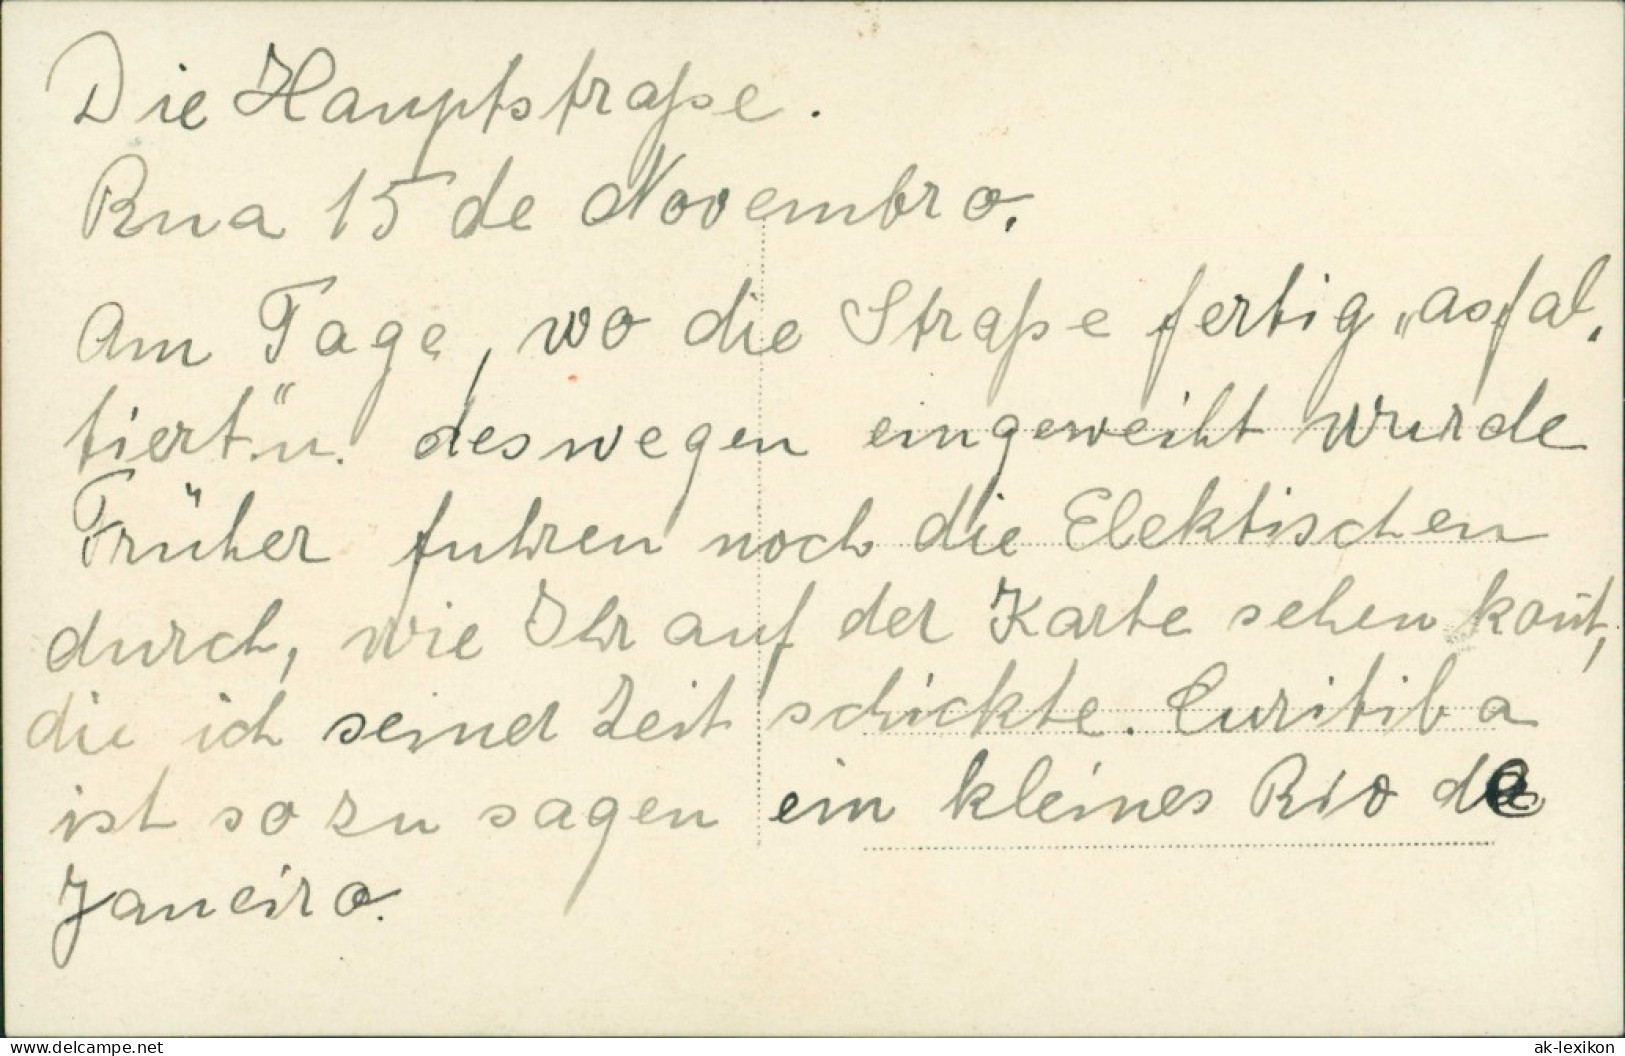 Die Hauptstraße.
Rua 15 de Novembro.
Am Tage, wo die Straße fertig „asfal-
tiert" u. deswegen eingeweiht wurde
Früher fuhren noch die Elektischen
durch, wie Ihr auf der Karte sehen kon̄t,
die ich seiner Zeit schickte. Curitiba
ist so zu sagen ein kleines Rio de
Janeiro.
www.delcampe.net
ak-lexikon